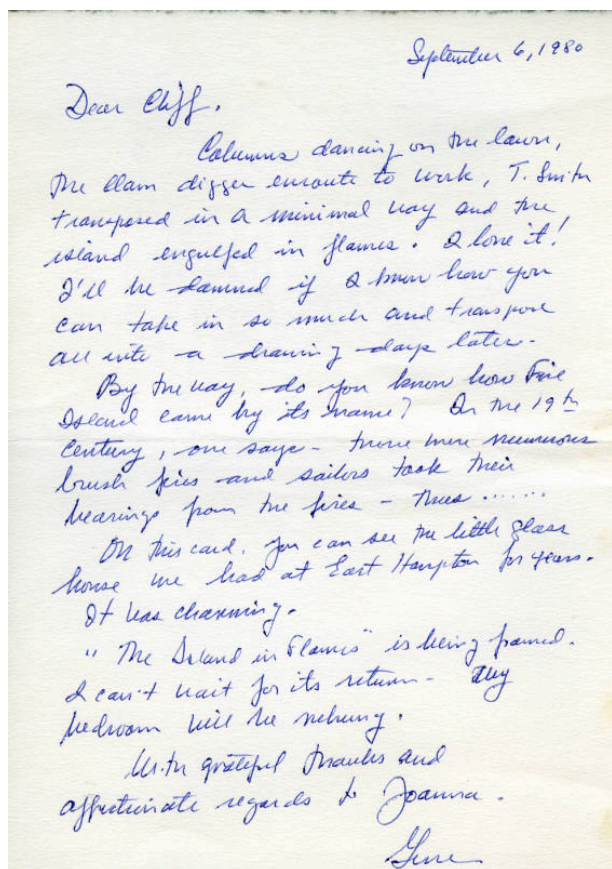 September 6, 1980
Dear Cliff.
Columns dancing on the lawn,
the clam digger enroute to work, T. Smith
transposed in a minimal way and the
island engulfed in flames. I love it!
I'll be damned if I know how you
can take in so much and transpose
all into a drawing days later.
By the way, do you know how Fire
Island came by its name? In the 19th
century, one says - there were numerous
brush fires and sailors took their
bearings from the fires - thus .......
On this card, you can see the little glass
house we had at East Hampton for years.
It was charming.
"The Island in Flames" is being framed.
I can't wait for its return - My
bedroom will be rehung.
With grateful thanks and
affectionate regards to Joanna.
Gene